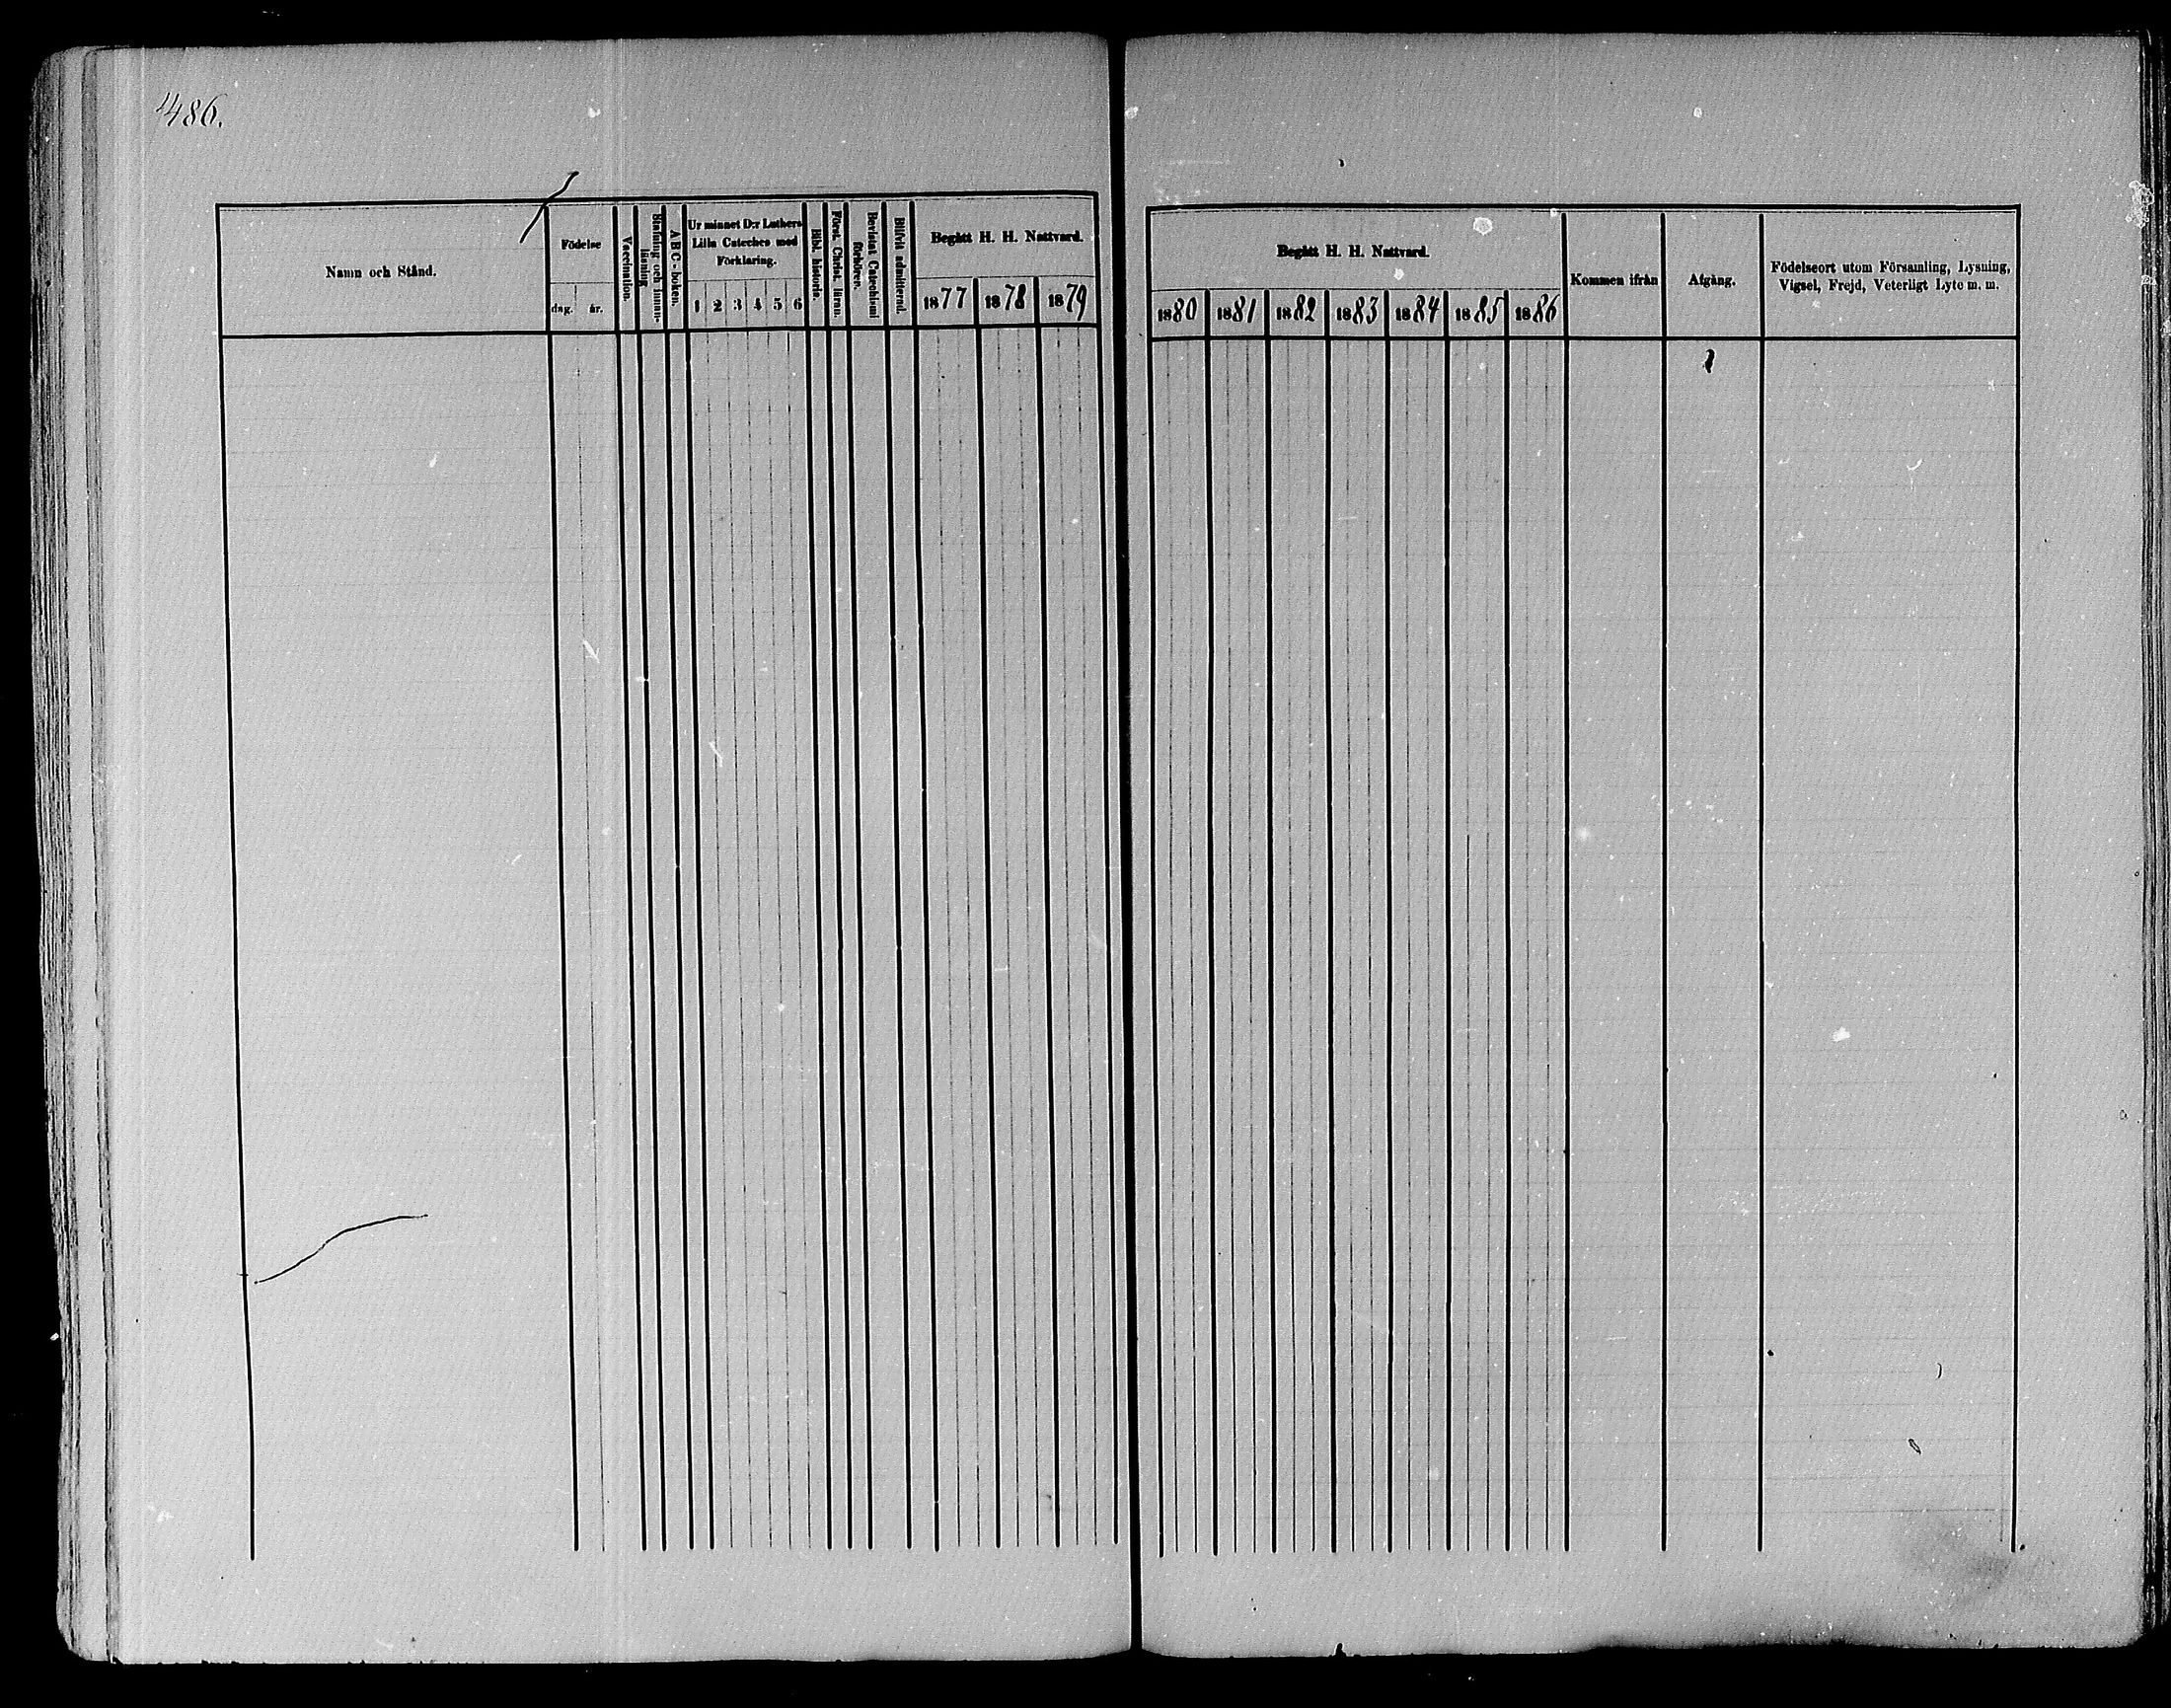 486.
Namn och Stånd.
Födelse
dag. år.
Vaccination.
Stafning och innan-
läsning
ABC-boken.
Ur minnet D:r Luthers
Lilla Cateches med
Förklaring.
1 2 3 4 5 6
Bibl. historia.
Först. Christ. läran.
Bevistat Catechismi
förhören.
Blifvit admitterad.
Begått H. H. Nattvard.
1877 1878 1879
Begått H. H. Nattvard.
1880 1881 1882 1883 1884 1885 1886
Kommen ifrån
Afgång.
Födelseort utom Församling, Lysning,
Vigsel, Frejd, Veterligt Lyte m. m.